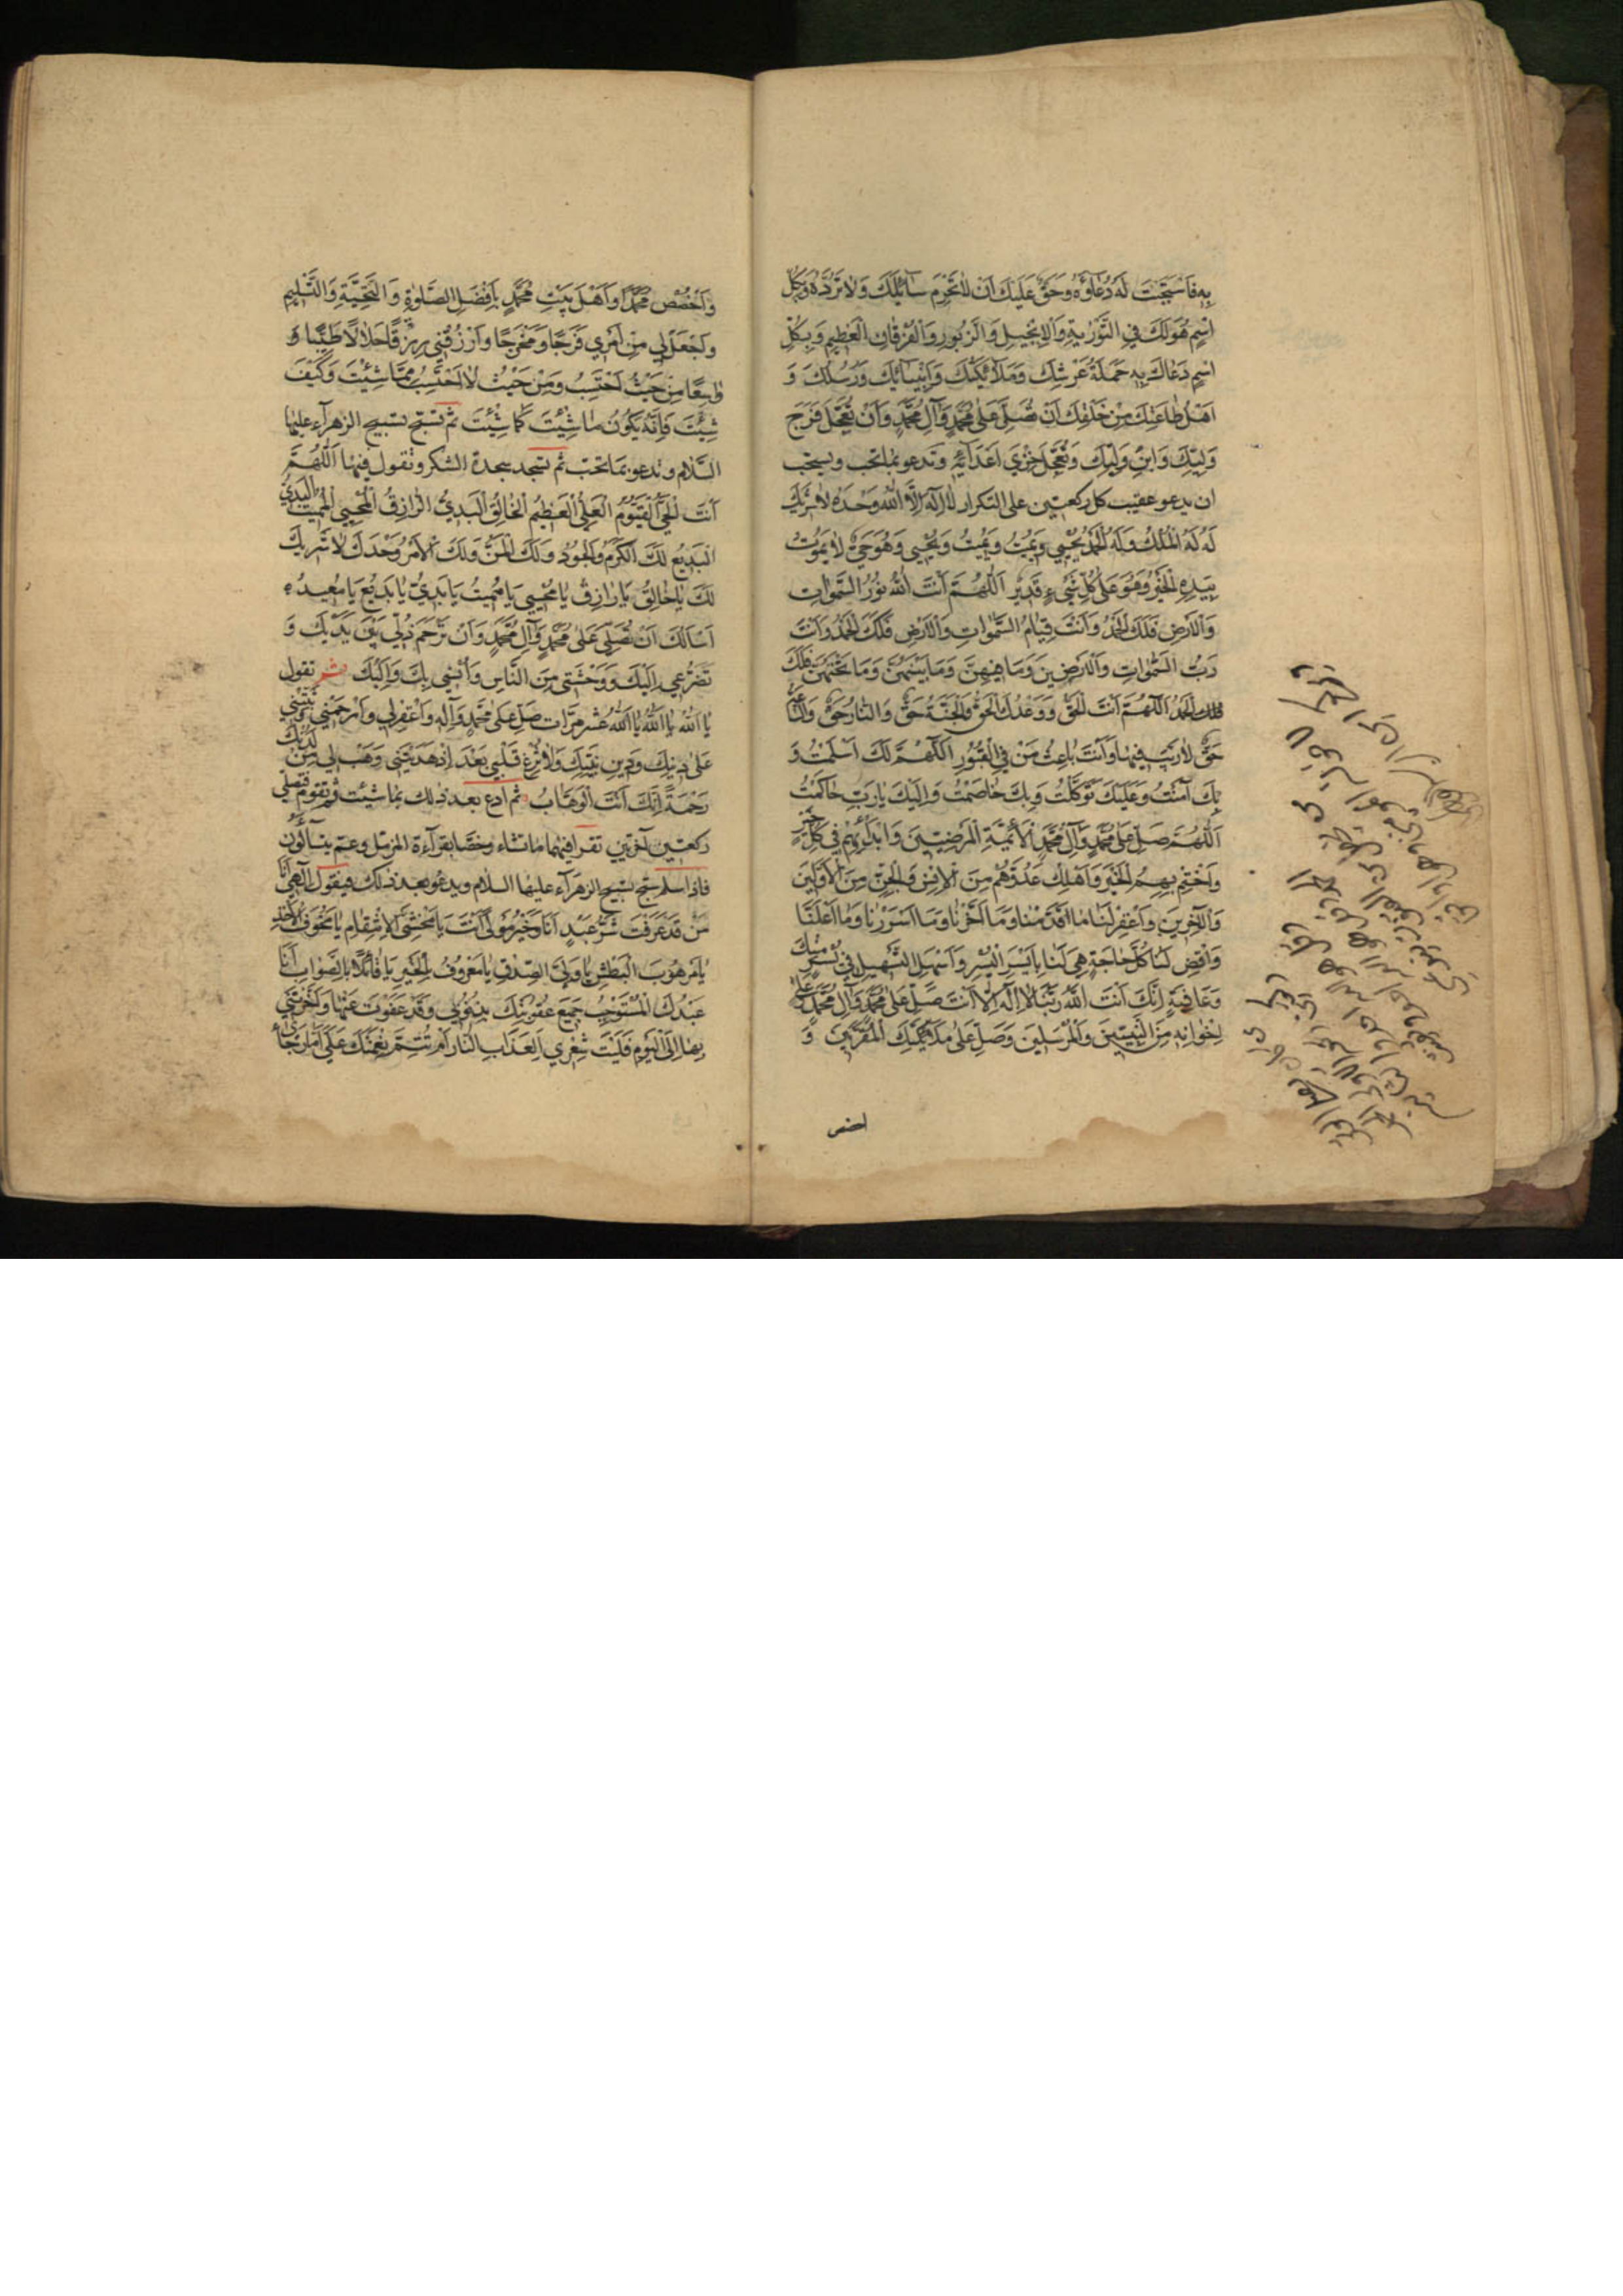 بِهِ فَاسْتَجَبْتَ لَهُ دُعَاؤَهُ وَحَقٌّ عَلَيْكَ اَنْ لَا تَحْرِمَ سَائِلَكَ وَلَا تَرُدَّهُ وَبِكُلِّ
اسْمٍ هُوَ لَكَ فِي التَّوْرٰيةِ وَالْاِنْجِيلِ وَالزَّبُورِ وَالْفُرْقَانِ الْعَظِيمِ وَبِكُلِّ
اسْمٍ دَعَاكَ بِهِ حَمَلَةُ عَرْشِكَ وَمَلَآئِكَتُكَ وَاَنْبِيَائُكَ وَرُسُلُكَ وَ
اَهْلُ طَاعَتِكَ مِنْ خَلْقِكَ اَنْ تُصَلِّيَ عَلٰى مُحَمَّدٍ وَآلِ مُحَمَّدٍ وَاَنْ تُعَجِّلَ فَرَجَ
وَلِيِّكَ وَابْنِ وَلِيِّكَ وَتُعَجِّلَ خِزْيَ اَعْدَآئِهِ وَتَدعو بما تحب ويستحب
ان يدعو عقيب كل ركعتين على التكرار لَا اِلٰهَ اِلَّا اللّٰهُ وَحْدَهُ لَا شَرِيكَ
لَهُ لَهُ الْمُلْكُ وَلَهُ الْحَمْدُ يُحْيِي وَيُمِيتُ وَيُمِيتُ وَيُحْيِي وَهُوَ حَيٌّ لَا يَمُوتُ
بِيَدِهِ الْخَيْرُ وَهُوَ عَلٰى كُلِّ شَيْءٍ قَدِيرٌ اَللّٰهُمَّ اَنْتَ اللّٰهُ نُورُ السَّمٰوَاتِ
وَالْاَرْضِ فَلَكَ الْحَمْدُ وَاَنْتَ قِيَامُ السَّمٰوَاتِ وَالْاَرْضِ فَلَكَ الْحَمْدُ وَاَنْتَ
رَبُّ السَّمٰوَاتِ وَالْاَرَضِينَ وَمَا فِيهِنَّ وَمَا بَيْنَهُنَّ وَمَا تَحْتَهُنَّ فَلَكَ
الْحَمْدُ اَللّٰهُمَّ اَنْتَ الْحَقُّ وَوَعْدُكَ الْحَقُّ وَالْجَنَّةُ حَقٌّ وَالنَّارُ حَقٌّ وَالسَّاعَةُ
حَقٌّ لَا رَيْبَ فِيهَا وَاَنْتَ بَاعِثُ مَنْ فِي الْقُبُورِ اَللّٰهُمَّ لَكَ اَسْلَمْتُ وَ
بِكَ آمَنْتُ وَعَلَيْكَ تَوَكَّلْتُ وَبِكَ خَاصَمْتُ وَاِلَيْكَ يَا رَبِّ حَاكَمْتُ
اَللّٰهُمَّ صَلِّ عَلٰى مُحَمَّدٍ وَآلِ مُحَمَّدٍ الْاَئِمَّةِ الْمَرْضِيِّينَ وَابْدَأْ بِهِمْ فِي كُلِّ خَيْرٍ
وَاخْتِمْ بِهِمُ الْخَيْرَ وَاَهْلِكْ عَدُوَّهُمْ مِنَ الْاِنْسِ وَالْجِنِّ مِنَ الْاَوَّلِينَ
وَالْآخِرِينَ وَاغْفِرْ لَنَا مَا قَدَّمْنَا وَمَا اَخَّرْنَا وَمَا اَسْرَرْنَا وَمَا اَعْلَنَّا
وَاقْضِ لَنَا كُلَّ حَاجَةٍ هِيَ لَنَا بِاَيْسَرِ الْيُسْرِ وَاَسْهَلِ التَّسْهِيلِ فِي يُسْرٍ مِنْكَ
وَعَافِيَةٍ اِنَّكَ اَنْتَ اللّٰهُ رَبُّنَا لَا اِلٰهَ اِلَّا اَنْتَ صَلِّ عَلٰى مُحَمَّدٍ وَآلِ مُحَمَّدٍ وَعَلٰى
اِخْوَانِهِ مِنَ النَّبِيِّينَ وَالْمُرْسَلِينَ وَصَلِّ عَلٰى مَلَآئِكَتِكَ الْمُقَرَّبِينَ وَ
اخصص
وَاخْصُصْ مُحَمَّدًا وَاَهْلَ بَيْتِ مُحَمَّدٍ بِاَفْضَلِ الصَّلٰوةِ وَالتَّحِيَّةِ وَالتَّسْلِيمِ
وَاجْعَلْ لِي مِنْ اَمْرِي فَرَجًا وَمَخْرَجًا وَارْزُقْنِي رِزْقًا حَلَالًا طَيِّبًا وَ
وَاسِعًا مِنْ حَيْثُ اَحْتَسِبُ وَمِنْ حَيْثُ لَا اَحْتَسِبُ مِمَّا شِئْتَ وَكَيْفَ
شِئْتَ فَاِنَّهُ يَكُونُ مَا شِئْتَ كَمَا شِئْتَ ثم تسبح تسبيح الزهرآء عليها
السَّلام وتدعو بما تحب ثم تسجد سجدة الشكر وتقول فيها اَللّٰهُمَّ
اَنْتَ الْحَيُّ الْقَيُّومُ الْعَلِيُّ الْعَظِيمُ الْخَالِقُ الْبَدِيُّ الرَّازِقُ الْمُحْيِي الْمُمِيتُ الْبَدِيُّ
الْبَدِيعُ لَكَ الْكَرَمُ وَالْجُودُ وَلَكَ الْمَنُّ وَلَكَ الْاَمْرُ وَحْدَكَ لَا شَرِيكَ
لَكَ يَا خَالِقُ يَا رَازِقُ يَا مُحْيِي يَا مُمِيتُ يَا بَدِيُّ يَا بَدِيعُ يَا مُعِيدُ
اَسْاَلُكَ اَنْ تُصَلِّيَ عَلٰى مُحَمَّدٍ وَآلِ مُحَمَّدٍ وَاَنْ تَرْحَمَ ذُلِّي بَيْنَ يَدَيْكَ وَ
تَضَرُّعِي اِلَيْكَ وَوَحْشَتِي مِنَ النَّاسِ وَاُنْسِي بِكَ وَاِلَيْكَ ثم تقول
يَا اَللّٰهُ يَا اَللّٰهُ يَا اَللّٰهُ عشر مرّات صَلِّ عَلٰى مُحَمَّدٍ وَآلِهِ وَاغْفِرْ لِي وَارْحَمْنِي وَثَبِّتْنِي
عَلٰى دِينِكَ وَدِينِ نَبِيِّكَ وَلَا تُزِغْ قَلْبِي بَعْدَ اِذْ هَدَيْتَنِي وَهَبْ لِي مِنْ لَدُنْكَ
رَحْمَةً اِنَّكَ اَنْتَ الْوَهَّابُ ثم ادع بعد ذلك بما شئت وتقوم فتصلي
ركعتين آخرتين تقرا فيهما ما تشاء وخصّا بقرآءة المزمل وعم يتسآئلون
فاذا سلم سبح تسبيح الزهرآء عليها السلام ويدعو بعد ذلك فيقول اِلٰهِي اَنَا
مَنْ قَدْ عَرَفْتَ شَرُّ عَبْدٍ اَنَا وَخَيْرُ مَوْلًى اَنْتَ يَا مَخْشِيَّ الْاِنْتِقَامِ يَا مَخُوفَ الْاَخْذِ
يَا مَرْهُوبَ الْبَطْشِ يَا وَلِيَّ الصِّدْقِ يَا مَعْرُوفُ بِالْخَيْرِ يَا قَائِلًا بِالصَّوَابِ اَنَا
عَبْدُكَ الْمُسْتَوْجِبُ جَمِيعَ عُقُوبَتِكَ بِذُنُوبِي وَقَدْ عَفَوْتَ عَنْهَا وَاَخَّرْتَنِي
بِهَا اِلَى الْيَوْمِ فَلَيْتَ شِعْرِي اَلِعَذَابِ النَّارِ اَمْ تُتِمُّ نِعْمَتَكَ عَلَيَّ اَمَّا رَجَائِي